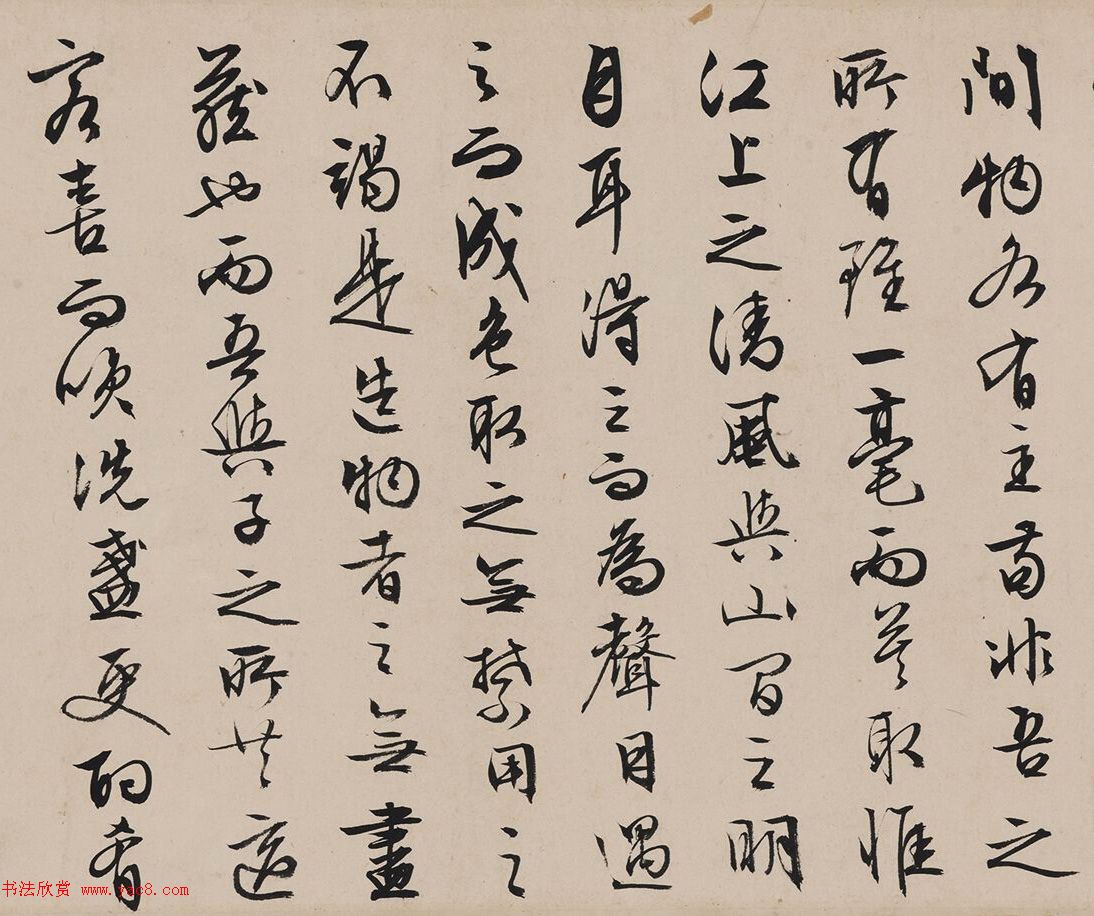 間物各有主苟非吾之
所有雖一毫而莫取惟
江上之清風與山間之明
月耳得之而為聲目遇
之而成色取之無禁用之
不竭是造物者之無盡
藏也而吾與子之所共適
客喜而笑洗盞更酌肴
书法欣赏 www.yac8.com